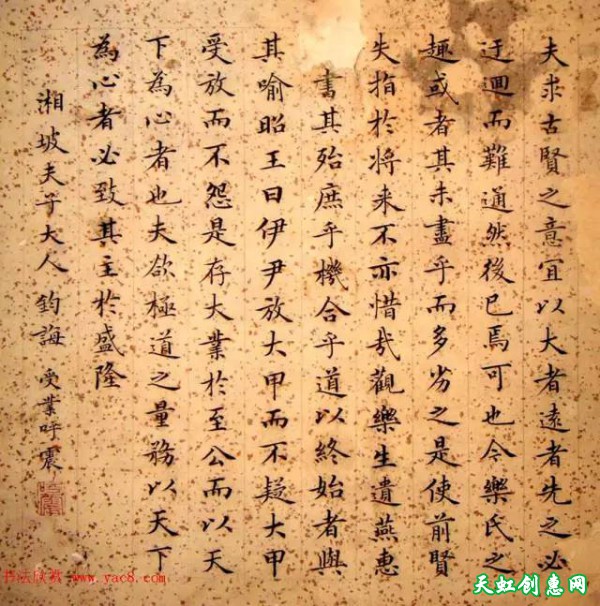 夫求古賢之意宜以大者遠者先之必
迂迴而難通然後已焉可也今樂氏之
趣或者其未盡乎而多劣之是使前賢
失指於将来不亦惜哉觀樂生遺燕惠
書其殆庶乎機合乎道以終始者與
其喻昭王曰伊尹放大甲而不疑大甲
受放而不怨是存大業於至公而以天
下為心者也夫欲極道之量務以天下
為心者必致其主於盛隆
湘坡夫子大人 鈞誨 受業呼震
书法欣赏 www.yac8.com
天虹创惠网